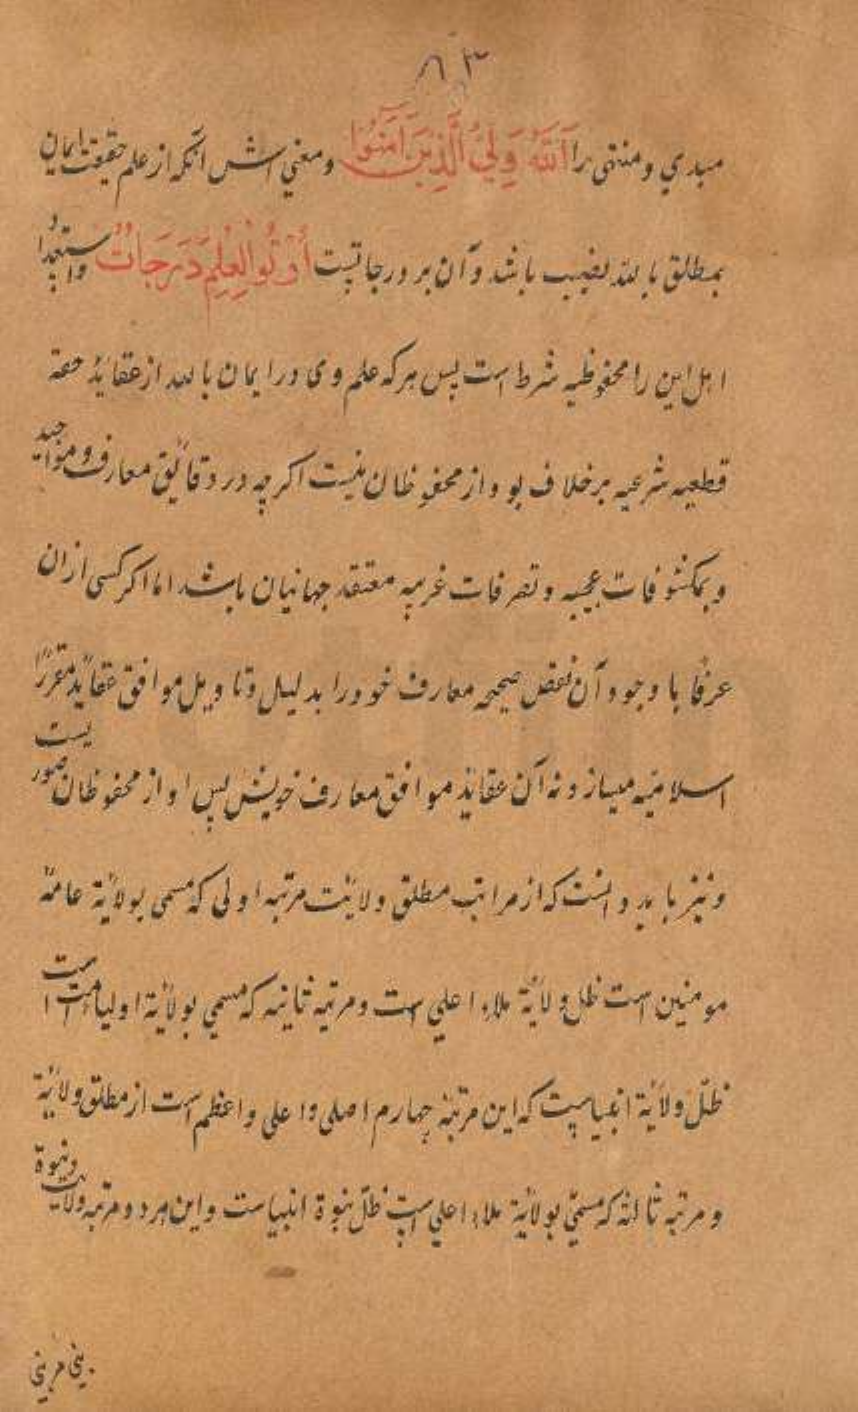 ۸۳
مبدي ومنتهی را اَللّٰهُ وَلِيُّ الَّذِينَ اٰمَنُوا ومعني اش آنکه از علم حقیقت ایمان
بمطلق بالله نصیب باشد وآن بر درجاتیست اُوْتُوا الْعِلْمَ دَرَجَات واستعداد
اهل این را محفوظیه شرط است پس هرکه علم وی در ایمان بالله از عقائد حقه
قطعیه شرعیه برخلاف بود از محفوظان نیست اکرچه در دقائق معارف ومواجید
وبمکشوفات عجیبه وتصرفات غریبه معتقد جهانیان باشد اما اکر کسی از ان
عرفا با وجود آن بعض صحیحه معارف خود را بدلیل وتاویل موافق عقائد مقرره
اسلامیه میسازد نه آن عقائد موافق معارف خویش پس او از محفوظان
ونیز باید دانست که از مراتب مطلق ولایت مرتبه اولی که مسمی بولایة عامه
مومنین است ظل ولایة ملاء اعلي است ومرتبه ثانیه که مسمي بولایة اولیا است
ظل ولایة انبیاست که این مرتبه چهارم اصلی واعلی واعظم است از مطلق ولایة
ومرتبه ثالثه که مسمي بولایة ملاء اعلي است ظل نبوة انبیاست واین هر دو مرتبه ولایت ونبوة